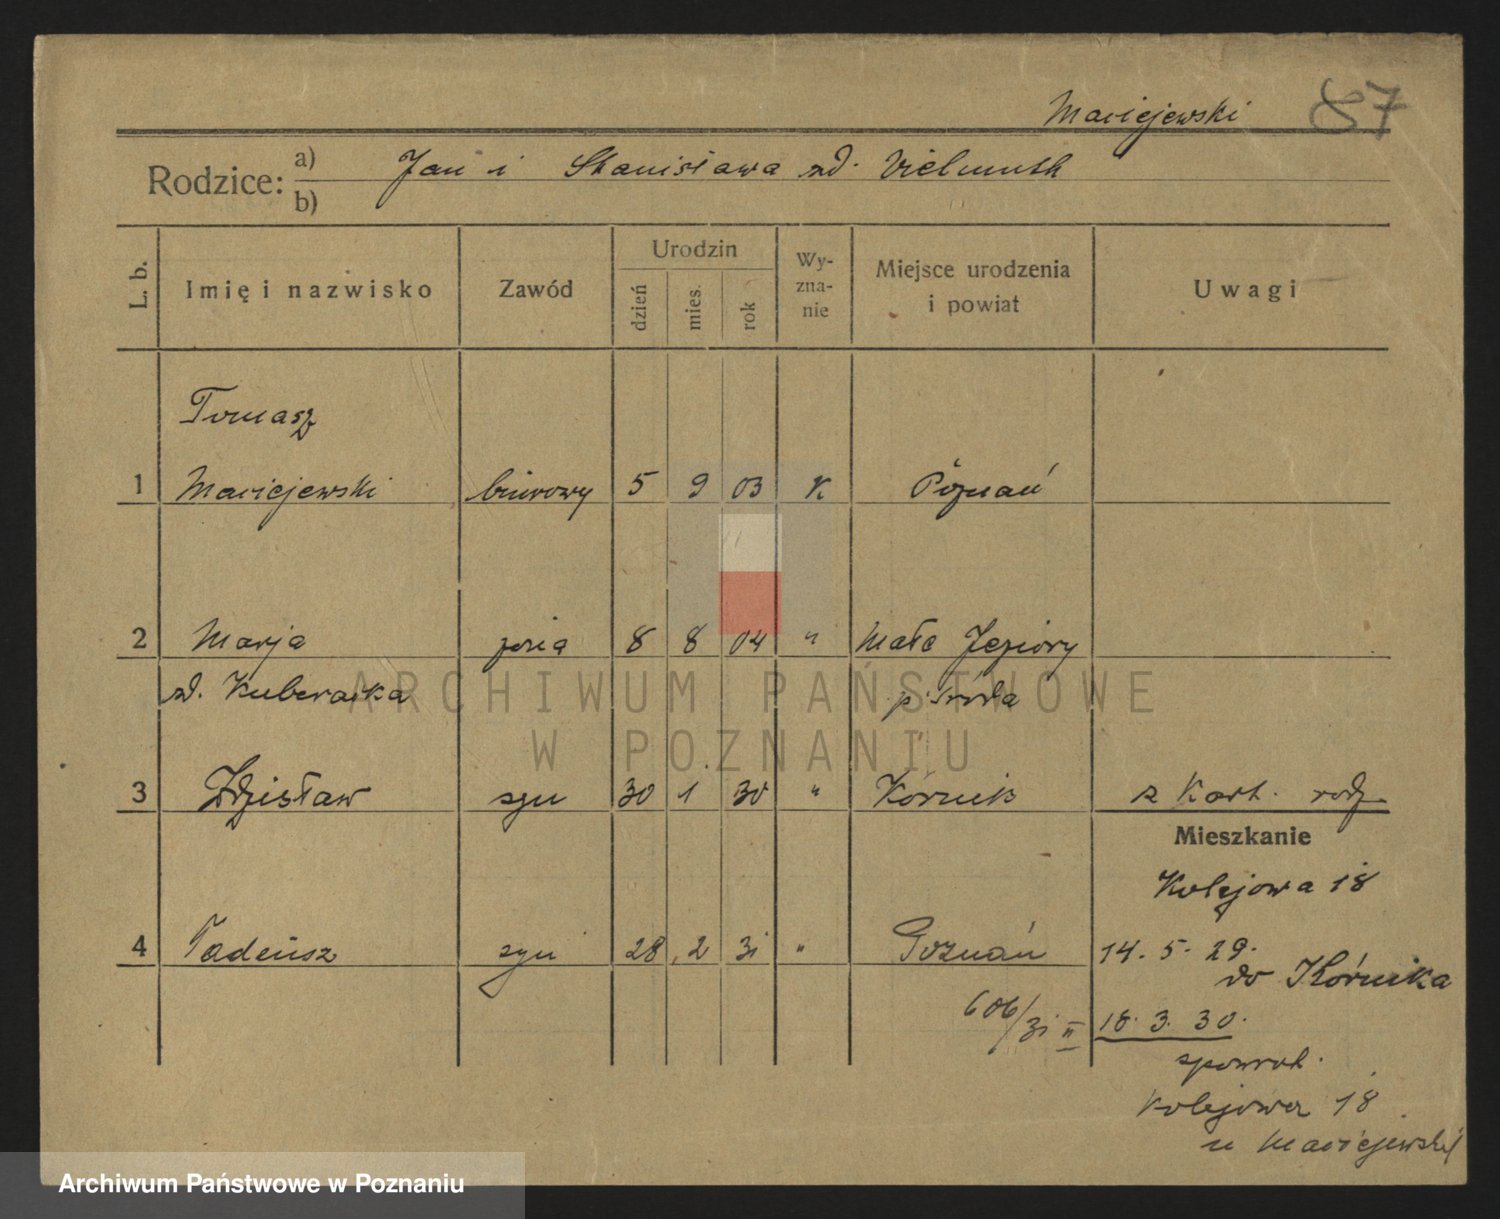 87
Maciejewski
Rodzice: a) Jan i Stanisława zd. Vielmuth
b)
L. b. Imię i nazwisko Zawód Urodzin dzień mies. rok Wy-zna-nie Miejsce urodzenia i powiat Uwagi
Tomasz
1 Maciejewski biurowy 5 9 03 K Poznań
2 Marja żona 8 8 04 " Małe Jeziory
zd. p. Środa
ARCHIWUM PAŃSTWOWE
W POZNANIU
3 Zdzisław syn 30 1 30 " Kórnik z Kart. rodz.
Mieszkanie
Kolejowa 18
4 Tadeusz syn 28 2 31 " Poznań 14. 5. 29.
do Kórnika
606/31 II 18. 3. 30.
spowrot.
Kolejowa 18
u Maciejewski
Archiwum Państwowe w Poznaniu